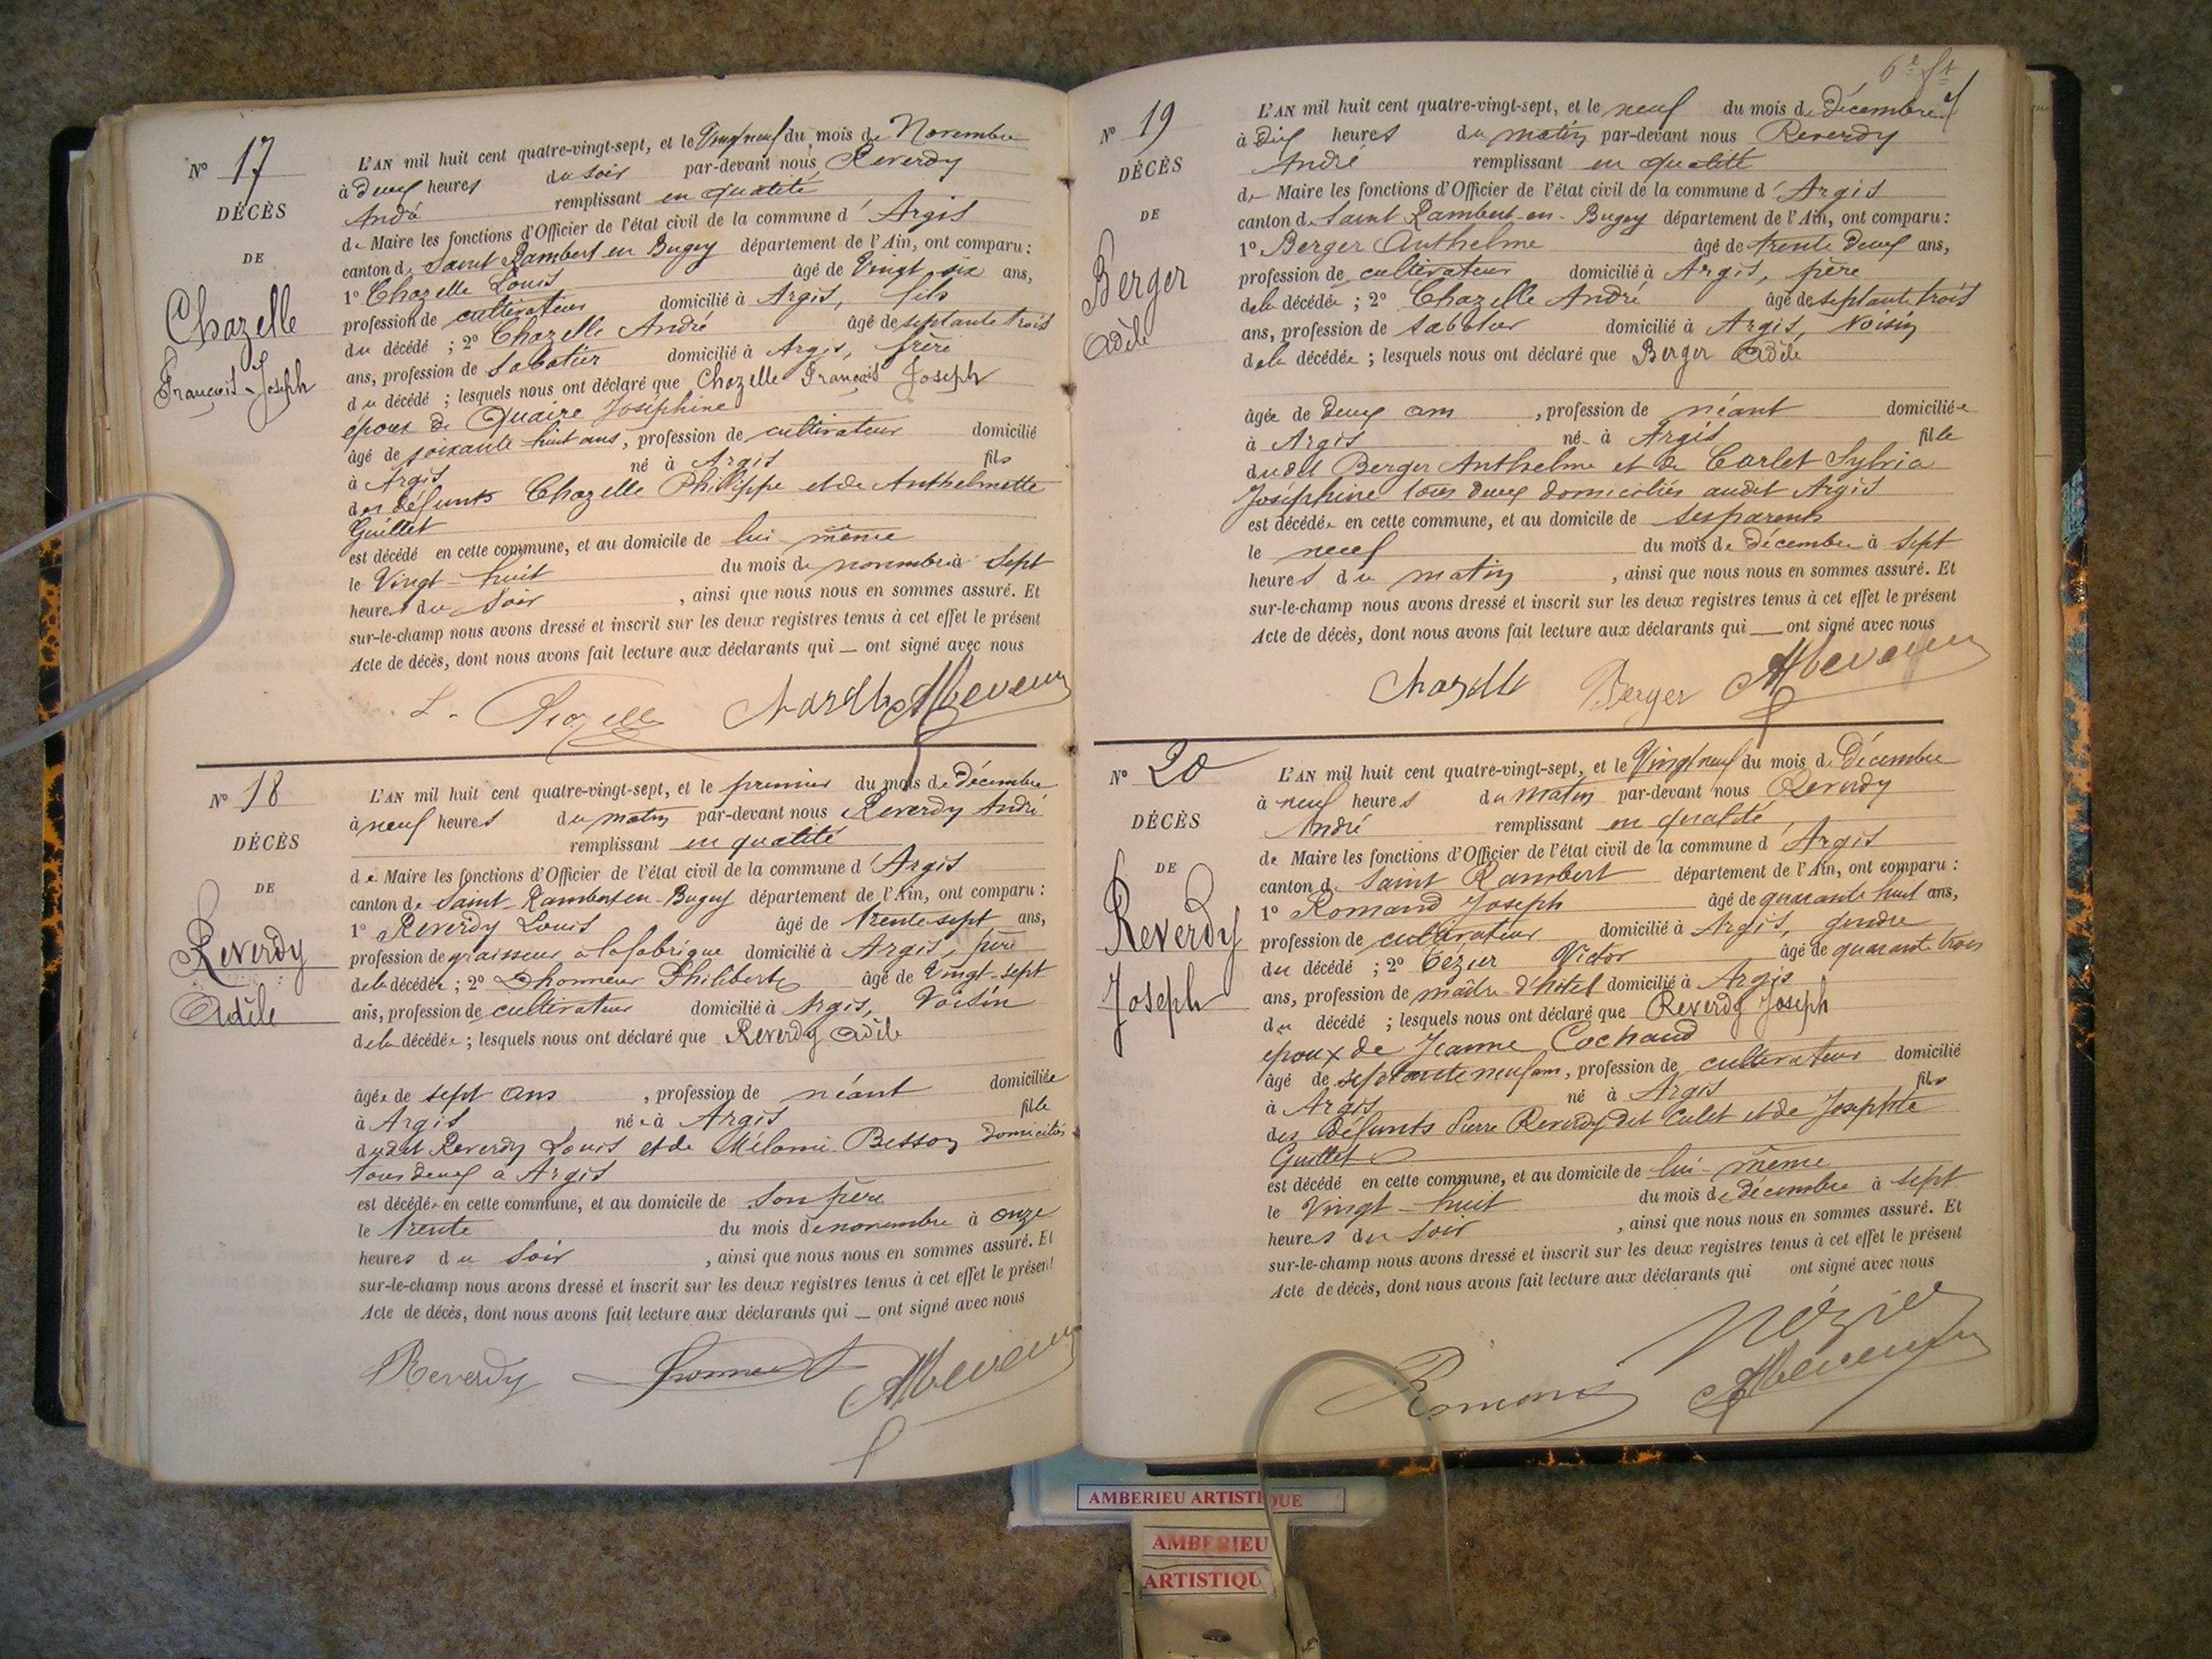 N° 17
DÉCÈS
DE
Chazelle
François-Joseph
L'AN mil huit cent quatre-vingt-sept, et le Vingt neuf du mois de Novembre
à deux heures du soir par-devant nous Reverdy
André remplissant en qualité
de Maire les fonctions d'Officier de l'état civil de la commune d'Argis
canton de Saint Rambert en Bugey département de l'Ain, ont comparu :
1° Chazelle Louis âgé de Vingt six ans,
profession de cultivateur domicilié à Argis, fils
du décédé ; 2° Chazelle André âgé de septante trois
ans, profession de Sabotier domicilié à Argis, frère
du décédé ; lesquels nous ont déclaré que Chazelle François Joseph
époux de Quaire Joséphine
âgé de soixante huit ans, profession de cultivateur domicilié
à Argis né à Argis fils
des défunts Chazelle Philippe et de Anthelmette
Guillet
est décédé en cette commune, et au domicile de lui même
le Vingt-huit du mois de novembre à Sept
heures du Soir, ainsi que nous nous en sommes assuré. Et
sur-le-champ nous avons dressé et inscrit sur les deux registres tenus à cet effet le présent
Acte de décès, dont nous avons fait lecture aux déclarants qui _ ont signé avec nous
L. Chazelle Chazelle
N° 18
DÉCÈS
DE
Reverdy
Adèle
L'AN mil huit cent quatre-vingt-sept, et le premier du mois de Décembre
à neuf heures du matin par-devant nous Reverdy André
remplissant en qualité
de Maire les fonctions d'Officier de l'état civil de la commune d'Argis
canton de Saint-Rambert en-Bugey département de l'Ain, ont comparu :
1° Reverdy Louis âgé de trente sept ans,
profession de graisseur à la fabrique domicilié à Argis, père
de la décédée ; 2° Dhonneur Philibert âgé de Vingt-sept
ans, profession de cultivateur domicilié à Argis, Voisin
de la décédée ; lesquels nous ont déclaré que Reverdy Adèle
âgée de sept ans, profession de néant domiciliée
à Argis née à Argis fille
dudit Reverdy Louis et de Mélanie Besson domiciliés
tous deux à Argis
est décédée en cette commune, et au domicile de Son père
le trente du mois de novembre à onze
heures du Soir, ainsi que nous nous en sommes assuré. Et
sur-le-champ nous avons dressé et inscrit sur les deux registres tenus à cet effet le présent
Acte de décès, dont nous avons fait lecture aux déclarants qui _ ont signé avec nous
Reverdy
6e ft
N° 19
DÉCÈS
DE
Berger
Adèle
L'AN mil huit cent quatre-vingt-sept, et le neuf du mois de Décembre
à Dix heures du matin par-devant nous Reverdy
André remplissant en qualité
de Maire les fonctions d'Officier de l'état civil de la commune d'Argis
canton de Saint Rambert-en-Bugey département de l'Ain, ont comparu :
1° Berger Anthelme âgé de trente deux ans,
profession de cultivateur domicilié à Argis, père
de la décédée ; 2° Chazelle André âgé de septante trois
ans, profession de sabotier domicilié à Argis, Voisin
de la décédée ; lesquels nous ont déclaré que Berger Adèle
âgée de deux ans, profession de néant domiciliée
à Argis né à Argis fille
dudit Berger Anthelme et de Carlet Sylvia
Joséphine tous deux domiciliés audit Argis
est décédée en cette commune, et au domicile de ses parents
le neuf du mois de décembre à sept
heures du matin, ainsi que nous nous en sommes assuré. Et
sur-le-champ nous avons dressé et inscrit sur les deux registres tenus à cet effet le présent
Acte de décès, dont nous avons fait lecture aux déclarants qui _ ont signé avec nous
Chazelle Berger
N° 20
DÉCÈS
DE
Reverdy
Joseph
L'AN mil huit cent quatre-vingt-sept, et le Vingt neuf du mois de Décembre
à neuf heures du matin par-devant nous Reverdy
André remplissant en qualité
de Maire les fonctions d'Officier de l'état civil de la commune d'Argis
canton de Saint Rambert département de l'Ain, ont comparu :
1° Romand Joseph âgé de quarante huit ans,
profession de cultivateur domicilié à Argis, gendre
du décédé ; 2° Victor âgé de quarante trois
ans, profession de maître d'hôtel domicilié à Argis
du décédé ; lesquels nous ont déclaré que Reverdy Joseph
époux de Jeanne Cochand
âgé de septante neuf ans, profession de cultivateur domicilié
à Argis né à Argis fils
des défunts Pierre Reverdy dit Culet et de Josephte
Guillet
est décédé en cette commune, et au domicile de lui-même
le Vingt-huit du mois de décembre à sept
heures du soir, ainsi que nous nous en sommes assuré. Et
sur-le-champ nous avons dressé et inscrit sur les deux registres tenus à cet effet le présent
Acte de décès, dont nous avons fait lecture aux déclarants qui ont signé avec nous
Romand
AMBERIEU ARTISTIQUE
AMBERIEU
ARTISTIQU